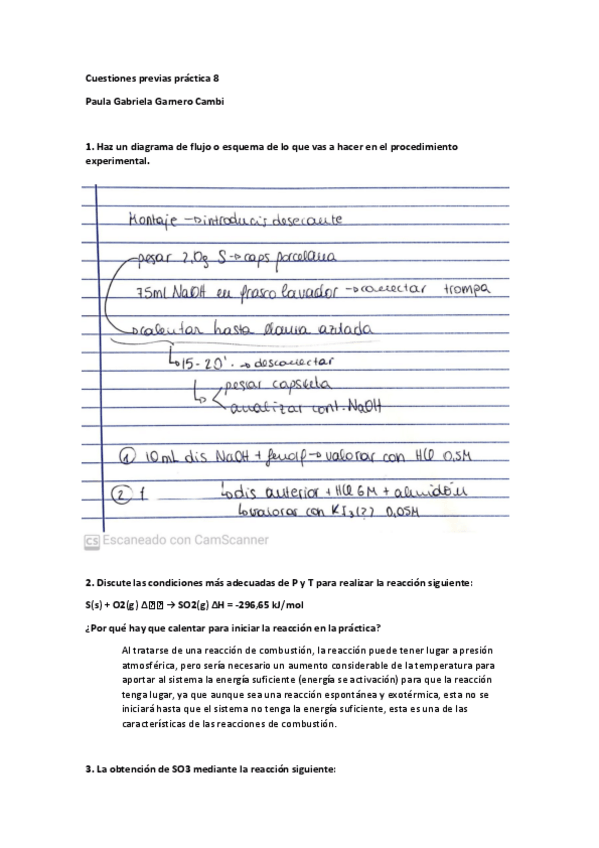 Cuestiones previas práctica 8
Paula Gabriela Gamero Cambi
1. Haz un diagrama de flujo o esquema de lo que vas a hacer en el procedimiento
experimental.
Montaje → introducis desecante
pesar 2,0g S → caps porcelana
75ml NaOH en frasco lavador → conectar trompa
calentar hasta llama azulada
15-20'. → desconectar
pesar cápsula
analizar cont. NaOH
① 10mL dis NaOH + fenolf → valorar con HCl 0,5M
② 1 dis anterior + HCl 6M + almidón
valorar con KI3(?) 0,05M
CS Escaneado con CamScanner
2. Discute las condiciones más adecuadas de P y T para realizar la reacción siguiente:
S(s) + O2(g) Δ → SO2(g) ΔH = -296,65 kJ/mol
¿Por qué hay que calentar para iniciar la reacción en la práctica?
Al tratarse de una reacción de combustión, la reacción puede tener lugar a presión
atmosférica, pero sería necesario un aumento considerable de la temperatura para
aportar al sistema la energía suficiente (energía se activación) para que la reacción
tenga lugar, ya que aunque sea una reacción espontánea y exotérmica, esta no se
iniciará hasta que el sistema no tenga la energía suficiente, esta es una de las
características de las reacciones de combustión.
3. La obtención de SO3 mediante la reacción siguiente: